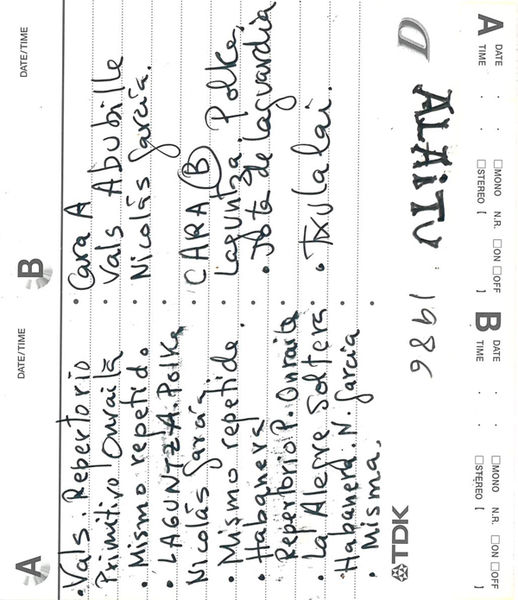 A DATE/TIME
• Vals. Repertorio
Primitivo Onraita
• Mismo repetido
• LAGUNTZA. Polka
Nicolás García.
• Mismo repetido.
• Habanera
Repertorio P. Onraita
• La Alegre Soltera
Habanera. N. García
• Misma.
B DATE/TIME
• Cara A
• Vals Abubille
• Nicolás García.
• CARA B
Laguntza. Polka.
• Jota de Laguardia
• Txulalai.
TDK
D ALAITU 1986
A DATE . . □MONO N.R. □ON □OFF
TIME □STEREO [ ]
B DATE . . □MONO N.R. □ON □OFF
TIME □STEREO [ ]